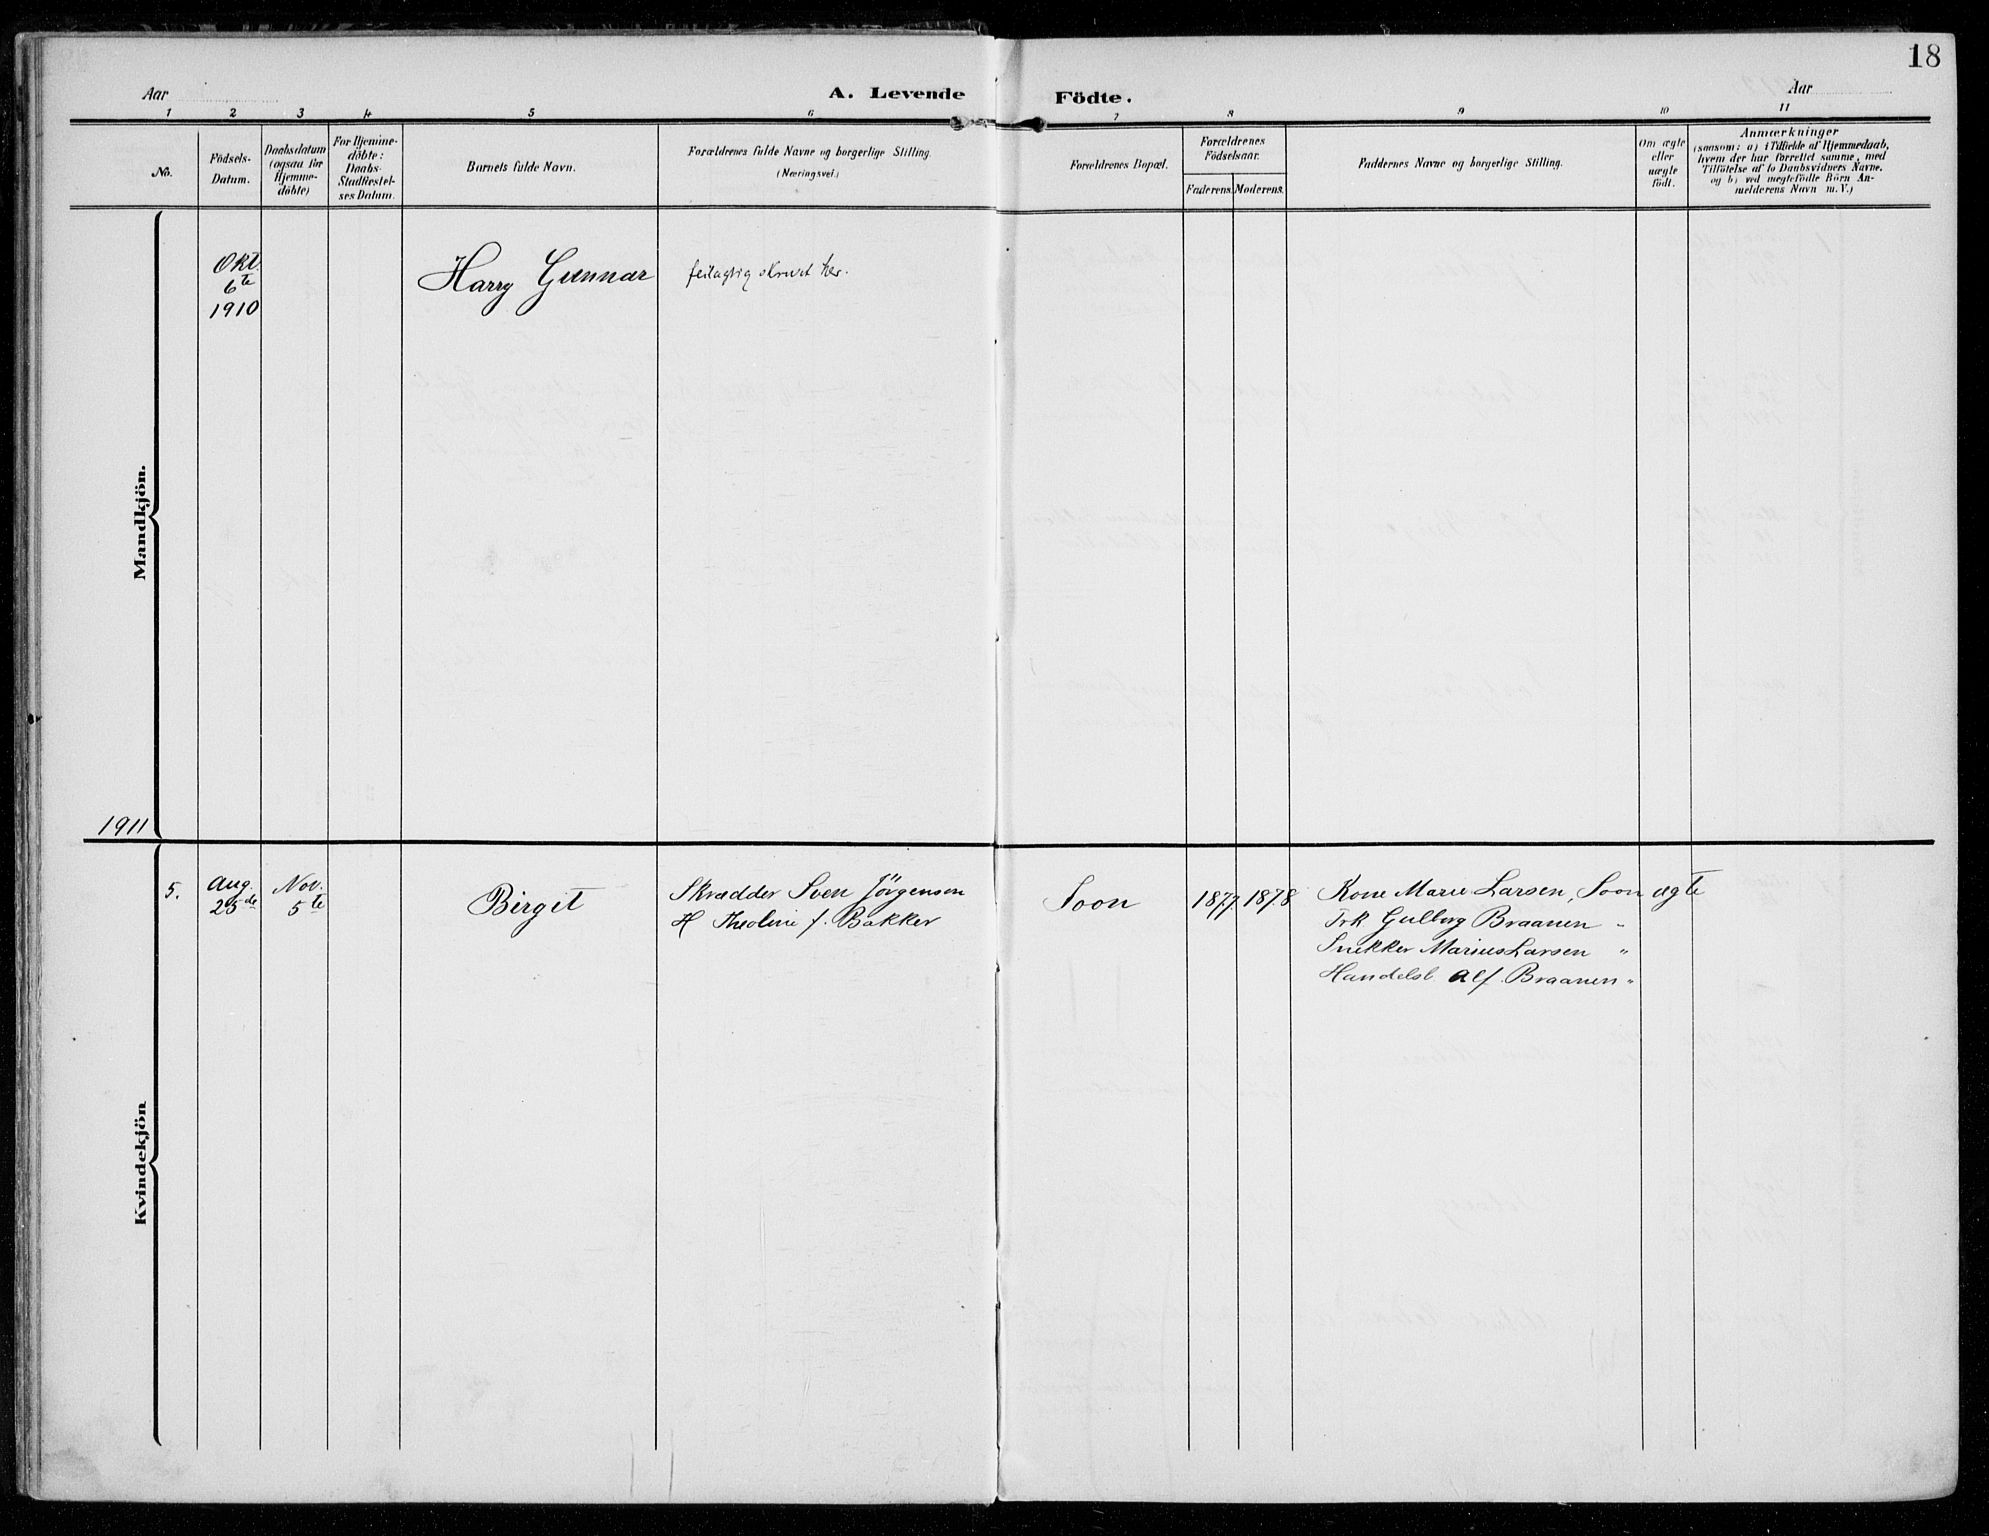 18
Aar
A. Levende Födte.
Aar
1 2 3 4 5 6 7 8 9 10 11
No.
Födsels-
Datum.
Daabsdatum
(ogsaa for
Hjemme-
döbte)
For Hjemme-
döbte:
Daabs-
Stadfæstel-
ses Datum.
Barnets fulde Navn.
Forældrenes fulde Navne og borgerlige Stilling.
(Næringsvei.)
Forældrenes Bopæl.
Forældrenes
Födselsaar.
Faderens. Moderens.
Faddernes Navne og borgerlige Stilling.
Om ægte
eller
uægte
födt.
Anmærkninger
(saasom: a) i Tilfælde af Hjemmedaab,
hvem der har forrettet samme, med
Tilföielse af to Daabsvidners Navne.
og b) ved uægtefödte Börn An-
melderens Navn m. V.)
Mandkjön.
Okt.
6te
1910
Harry Gunnar
feilagtig skrevet her.
1911
Kvindekjön
5.
Aug.
25de
Nov.
5te
Birgit
Skrædder Sven Jörgensen
H Theoline f. Bakker
Soon
1877 1878
Kone Marie Larsen, Soon
Frk Gulborg Braanen "
Snekker Marius Larsen "
Handelsb. Alf. Braanen "
ægte